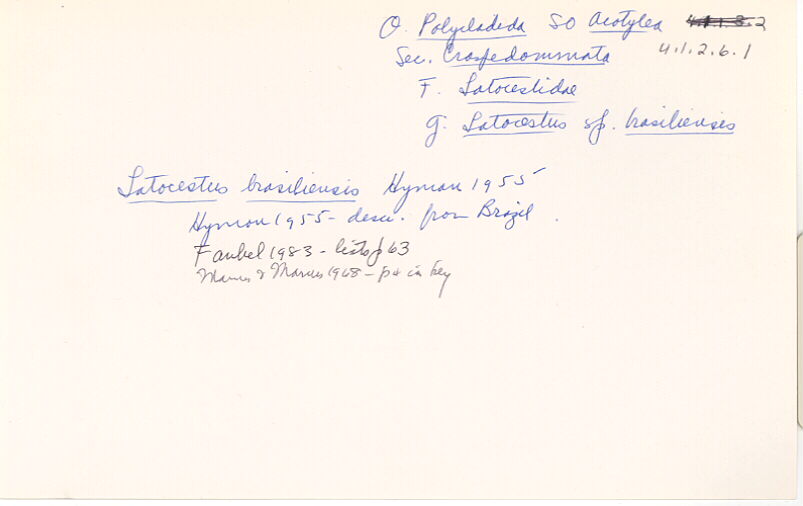 O. Polycladida SO Acotylea 4.1.1.3.2
Sec. Craspedommata 4.1.2.6.1
F. Latocestidae
G. Latocestus sp. brasiliensis
Latocestus brasiliensis Hyman 1955
Hyman 1955 - descr. from Brazil.
Faubel 1983 - lists p 63
Marcus & Marcus 1968 - p 4 in key